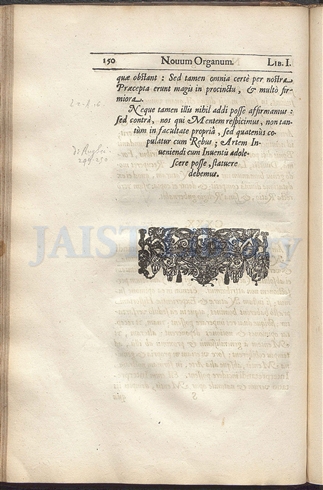 150 Novum Organum. LIB. I.
quæ obſtant : Sed tamen omnia certè per noſtra
Præcepta erunt magis in procinctu, & multò fir-
miora.
Neque tamen illis nihil addi poſſe affirmamus :
ſed contrà, nos qui Mentem reſpicimus, non tan-
tùm in facultate propriâ, ſed quatenùs co-
pulatur cum Rebus ; Artem In-
veniendi cum Inventis adole-
ſcere poſſe, ſtatuere
debemus.
JAIST Library